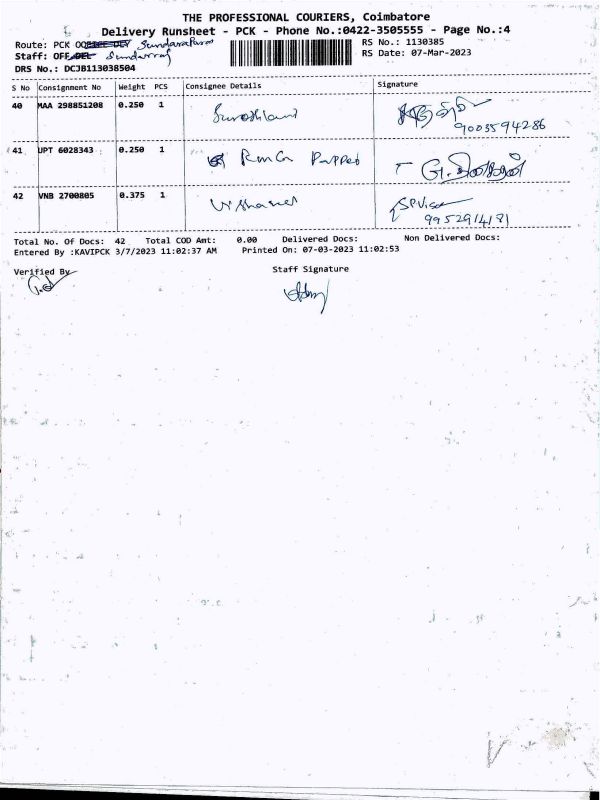 THE PROFESSIONAL COURIERS, Coimbatore
Delivery Runsheet - PCK - Phone No.:0422-3505555 - Page No.:4
Route: PCK Sundarapuram
RS No.: 1130385
Staff: OFF Sundarraj
RS Date: 07-Mar-2023
DRS No.: DCJB113038504
S No Consignment No Weight PCS Consignee Details Signature
40 MAA 298851208 0.250 1
9003594286
41 UPT 6028343 0.250 1
42 VNB 2700805 0.375 1
Total No. Of Docs: 42 Total COD Amt: 0.00 Delivered Docs: Non Delivered Docs:
Entered By :KAVIPCK 3/7/2023 11:02:37 AM Printed On: 07-03-2023 11:02:53
Verified By
Staff Signature